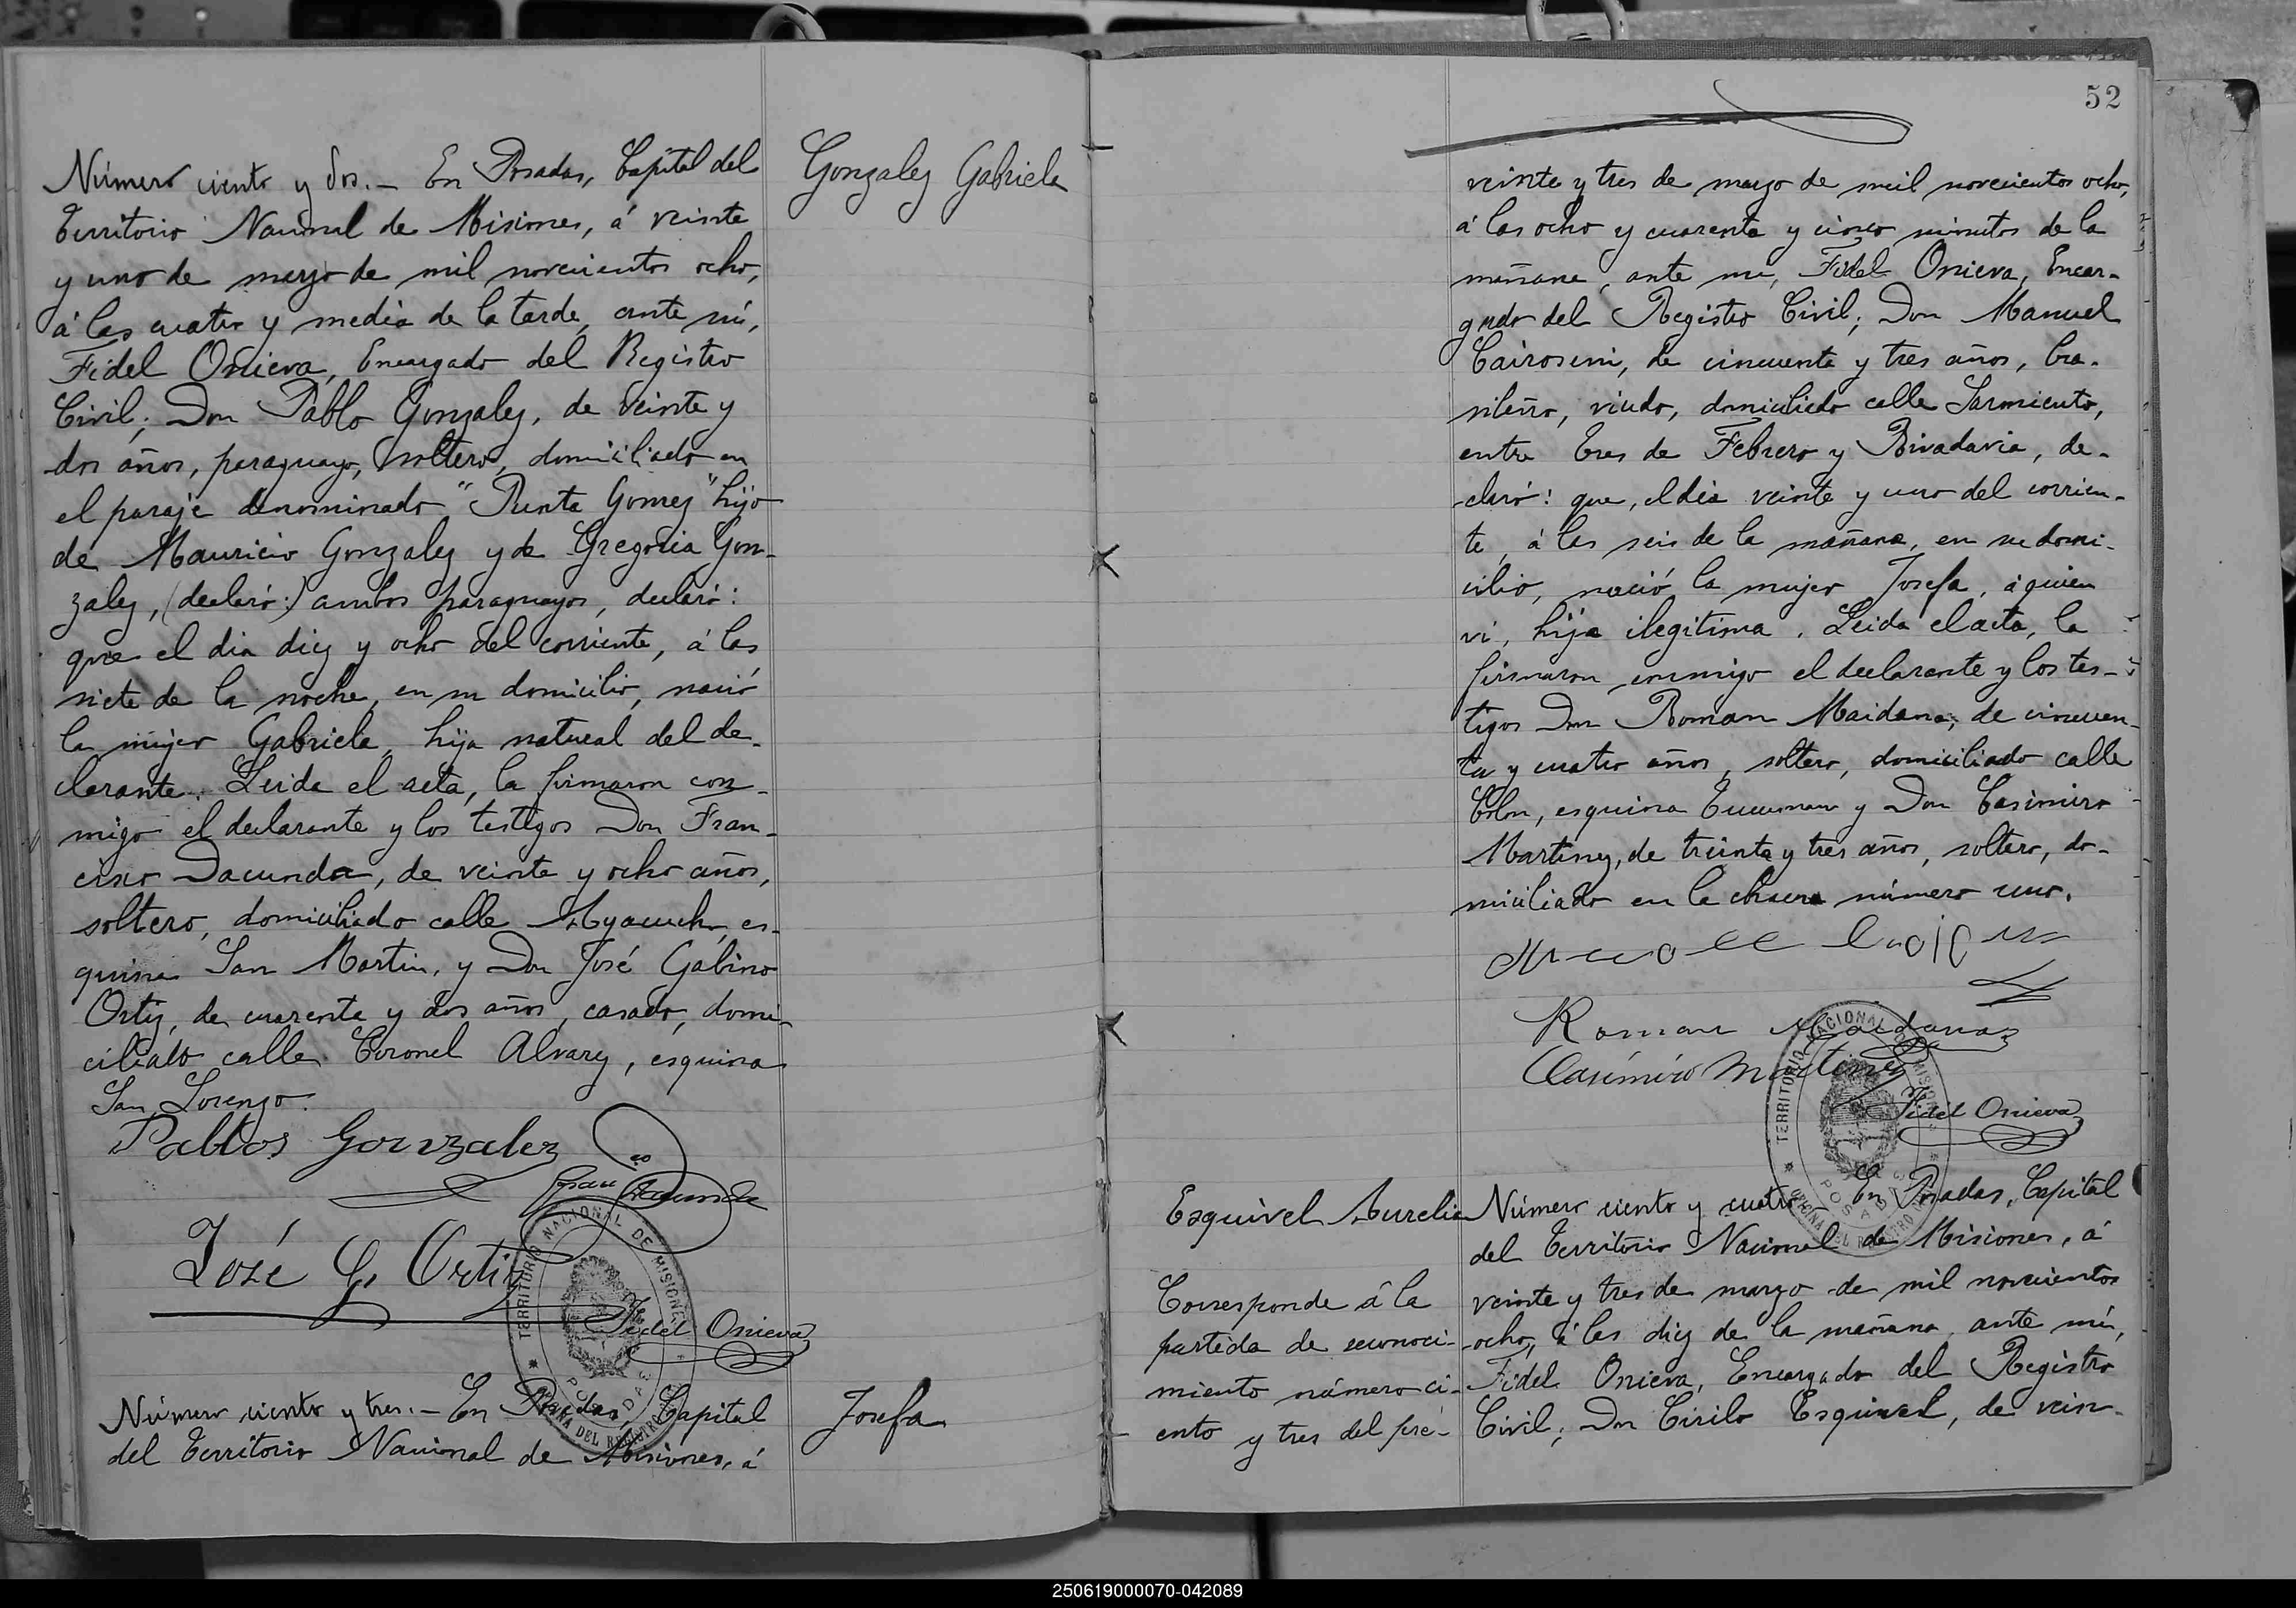 Número ciento y dos.- En Posadas, Capital del
Territorio Nacional de Misiones, á veinte
y uno de marzo de mil novecientos ocho,
á las cuatro y media de la tarde, ante mí,
Fidel Onieva, Encargado del Registro
Civil; Don Pablo Gonzalez, de veinte y
dos años, paraguayo, soltero, domiciliado en
el paraje denominado "Punta Gomez" hijo
de Mauricio Gonzalez y de Gregoria Gon-
zalez, (declaró:) ambos paraguayos, declaró:
que el dia diez y ocho del corriente, á las
siete de la noche, en su domicilio, nació
la mujer Gabriela, hija natural del de-
clarante. Leida el acta, la firmaron con-
migo el declarante y los testigos Don Fran-
cisco Dacunda, de veinte y ocho años,
soltero, domiciliado calle Ayacucho, es-
quina San Martin, y Don José Gabino
Ortiz, de cuarenta y dos años, casado, domi-
ciliado calle Coronel Alvarez, esquina
San Lorenzo.
Pablos Gonzalez
Franco Dacunda
José G. Ortiz
Fidel Onieva
TERRITORIO NACIONAL DE MISIONES
OFICINA DEL REGISTRO
POSADAS
Número ciento y tres.- En Posadas, Capital
del Territorio Nacional de Misiones, á
Gonzalez Gabriela
Josefa
52
veinte y tres de marzo de mil novecientos ocho,
á las ocho y cuarenta y cinco minutos de la
mañana, ante mi, Fidel Onieva, Encar-
gado del Registro Civil; Don Manuel
Cairoseni, de cincuenta y tres años, bra-
sileño, viudo, domiciliado calle Sarmiento,
entre Tres de Febrero y Rivadavia, de-
claró: que, el dia veinte y uno del corrien-
te, á las seis de la mañana, en su domi-
cilio, nació la mujer Josefa, á quien
vi, hija ilegitima. Leida el acta, la
firmaron conmigo el declarante y los tes-
tigos Don Roman Maidana, de cincuen-
ta y cuatro años, soltero, domiciliado calle
Colon, esquina Tucuman y Don Casimiro
Martinez, de treinta y tres años, soltero, do-
miciliado en la chacra número uno.
Roman Maidana
Casímiro Martinez
Fidel Onieva
TERRITORIO NACIONAL DE MISIONES
OFICINA DEL REGISTRO
POSADAS
Esquivel Aurelia
Corresponde á la
partida de reconoci-
miento número ci-
ento y tres del pre-
Número ciento y cuatro.- En Posadas, Capital
del Territorio Nacional de Misiones, á
veinte y tres de marzo de mil novecientos
ocho, á las diez de la mañana, ante mí,
Fidel Onieva, Encargado del Registro
Civil; Don Cirilo Esquivel, de vein-
250619000070-042089